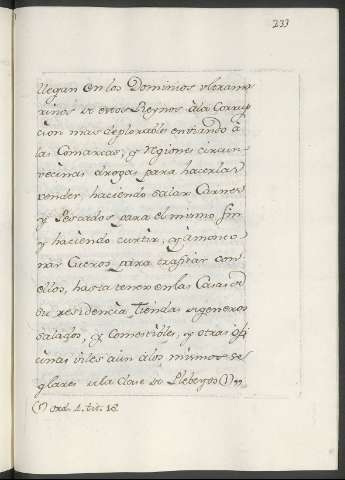 233
llegan en los Dominios ultrama
rinos de estos Reynos à la Corrup
cion mas deplorable enviando à
las Comarcas, y Regiones circun
vecinas drogas para hacerlas
vender, haciendo salar Carnes
y Pescados para el mismo fin
y haciendo curtir, y amonto
nar Cueros para traficar con
ellos, hasta tener en las Casas de
su residencia Tiendas de generos
salados, y Comestibles, y otras ofi
cinas viles aun a los mismos se
glares de la Clase de Plebeyos (1)
(1) ord. 4. tit. 16.